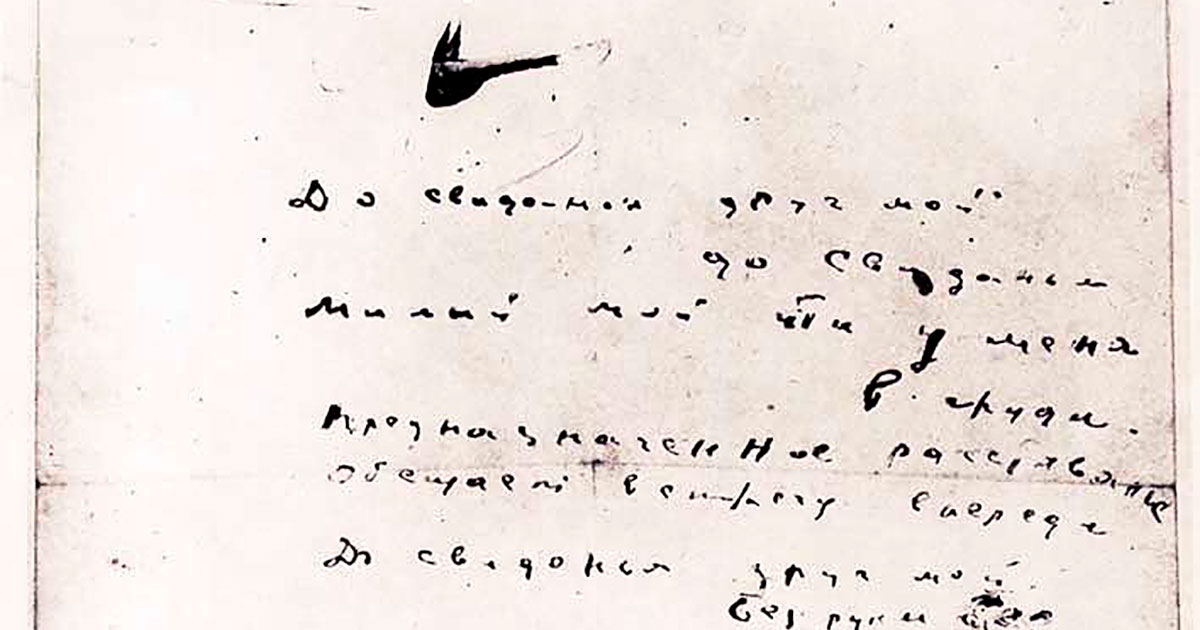 До свиданья друг мой
до свиданья
Милый мой ты у меня
в груди.
Предназначенное расставанье
Обещает встречу впереди
До свиданья друг мой
без руки